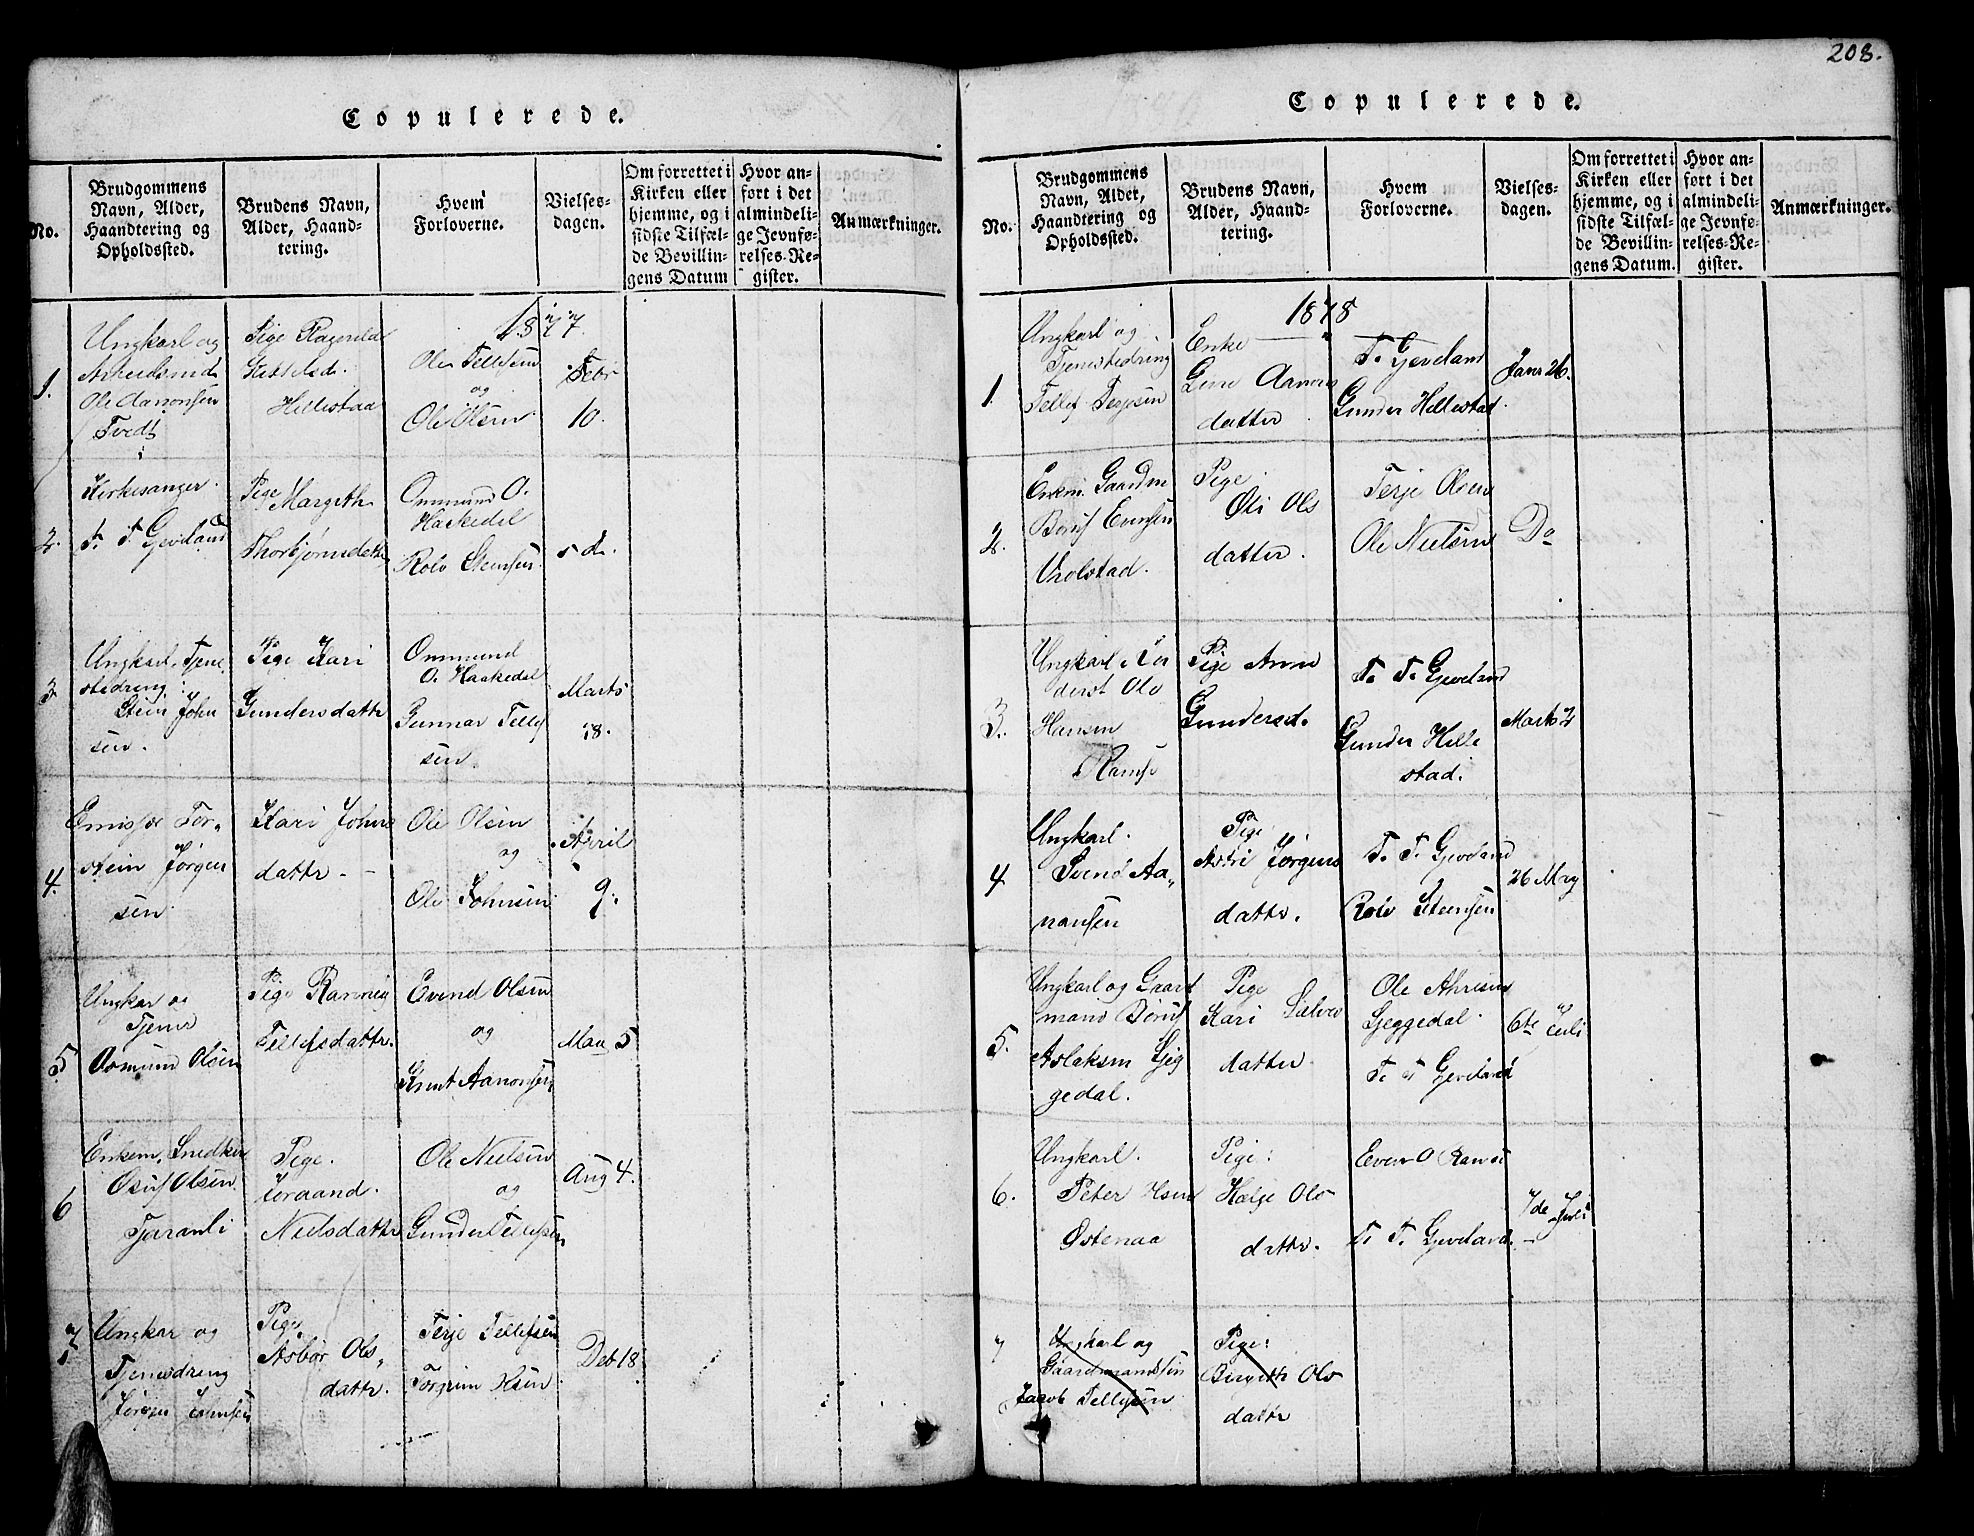 Copulerede.
No.
Brudgommens
Navn, Alder,
Haandtering og
Opholdssted.
Brudens Navn,
Alder, Haand-
tering.
Hvem
Forloverne.
Vielses-
dagen.
Om forrettet i
Kirken eller
hjemme, og i
sidste Tilfæl-
de Bevillin-
gens Datum
Hvor an-
ført i det
almindeli-
ge Jevnfø-
relses-Re-
gister.
Anmærkninger.
1877.
1.
Ungkarl og
Arbeidsmd
Ole Aanonsen
Tvedt
Pige Ragnild
Kittelsd.
Hillestad
Ole Tellefsen
og
Ole Olsen
Febr
10.
2.
Kirkesanger
T. T. Gjeveland
Pige Margith
Thorbjørnsdattr
Ommund O.
Haakedal
Rolv Steensen
s d.
3
Ungkarl Tjene
stedreng
Stein John
sen.
Pige Kari
Gundersdattr
Ommund
O. Haakedal
Gunnar Tellef
sen
Marts
18.
4.
Tor-
stein Jørgen
sen
Kari Johns
dattr.
Ole Olsen
og
Ole Johnsen
April
9.
5.
Ungkar og
Tjener
Osmund Olsen
Pige Ranneig
Tellefsdattr.
Evend Olsen
og
Knut Aanonsen
Mai 5
6
Enkem. Snedker
Osuf Olsen
Tjaranli
Pige.
Joraand.
Nielsdattr
Ole Nielsen
og
Gunder Tellefsen
Aug 4.
7
Ungkar og
Tjenesdreng
Jørgen Johnsen
Pige
Asbør Ols-
dattr.
Terje Tellefsen
Torgrim Hsen
Deb 18
208.
Copulerede.
No.
Brudgommens
Navn, Alder,
Haandtering og
Opholdssted.
Brudens Navn,
Alder, Haand-
tering.
Hvem
Forloverne.
Vielses-
dagen.
Om forrettet i
Kirken eller
hjemme, og i
sidste Tilfæl-
de Bevillin-
gens Datum.
Hvor an-
ført i det
almindeli-
ge Jevnfø-
relses-Re-
gister.
Anmærkninger.
1878
1.
Ungkarl og
Tjenestedreng
Tellef Terjesen
Enke
Gune Aanons
datter
T. Gjeveland
Gunder Hillestad.
Janr 26.
2.
Enkem. Gaardm
Børuf Evensen
Vrolstad.
Pige
Oli Ols
datter.
Terje Olsen
Ole Nielsen
Do
3.
Ungkarl
Ole
Hansen
Ramse
Pige Anne
Gundersd.
T. T. Gjeveland
Gunder Hille
stad.
Marts 2
4
Ungkarl.
Svend Aa-
nansen
Pige
Astri Jørgens
dattr.
T. T. Gjeveland
Rolv Steensen
26 May
5.
Ungkarl og Gaard
mand Børuf
Aslaksen Ljøg
gedal.
Pige
Kari Salve
datter
Ole Ahresen
Ljøggedal.
T. T. Gjeveland
6te Juli
6.
Ungkarl.
Peter Hsen
Østenaa
Pige:
Helje Ols
dattr.
Even O Ramse
T. T. Gjeveland.
7de Juli
7
Ungkarl og
Gaardmandssøn
Jacob Tellefsen
Pige:
Birgitte Ols
dattr